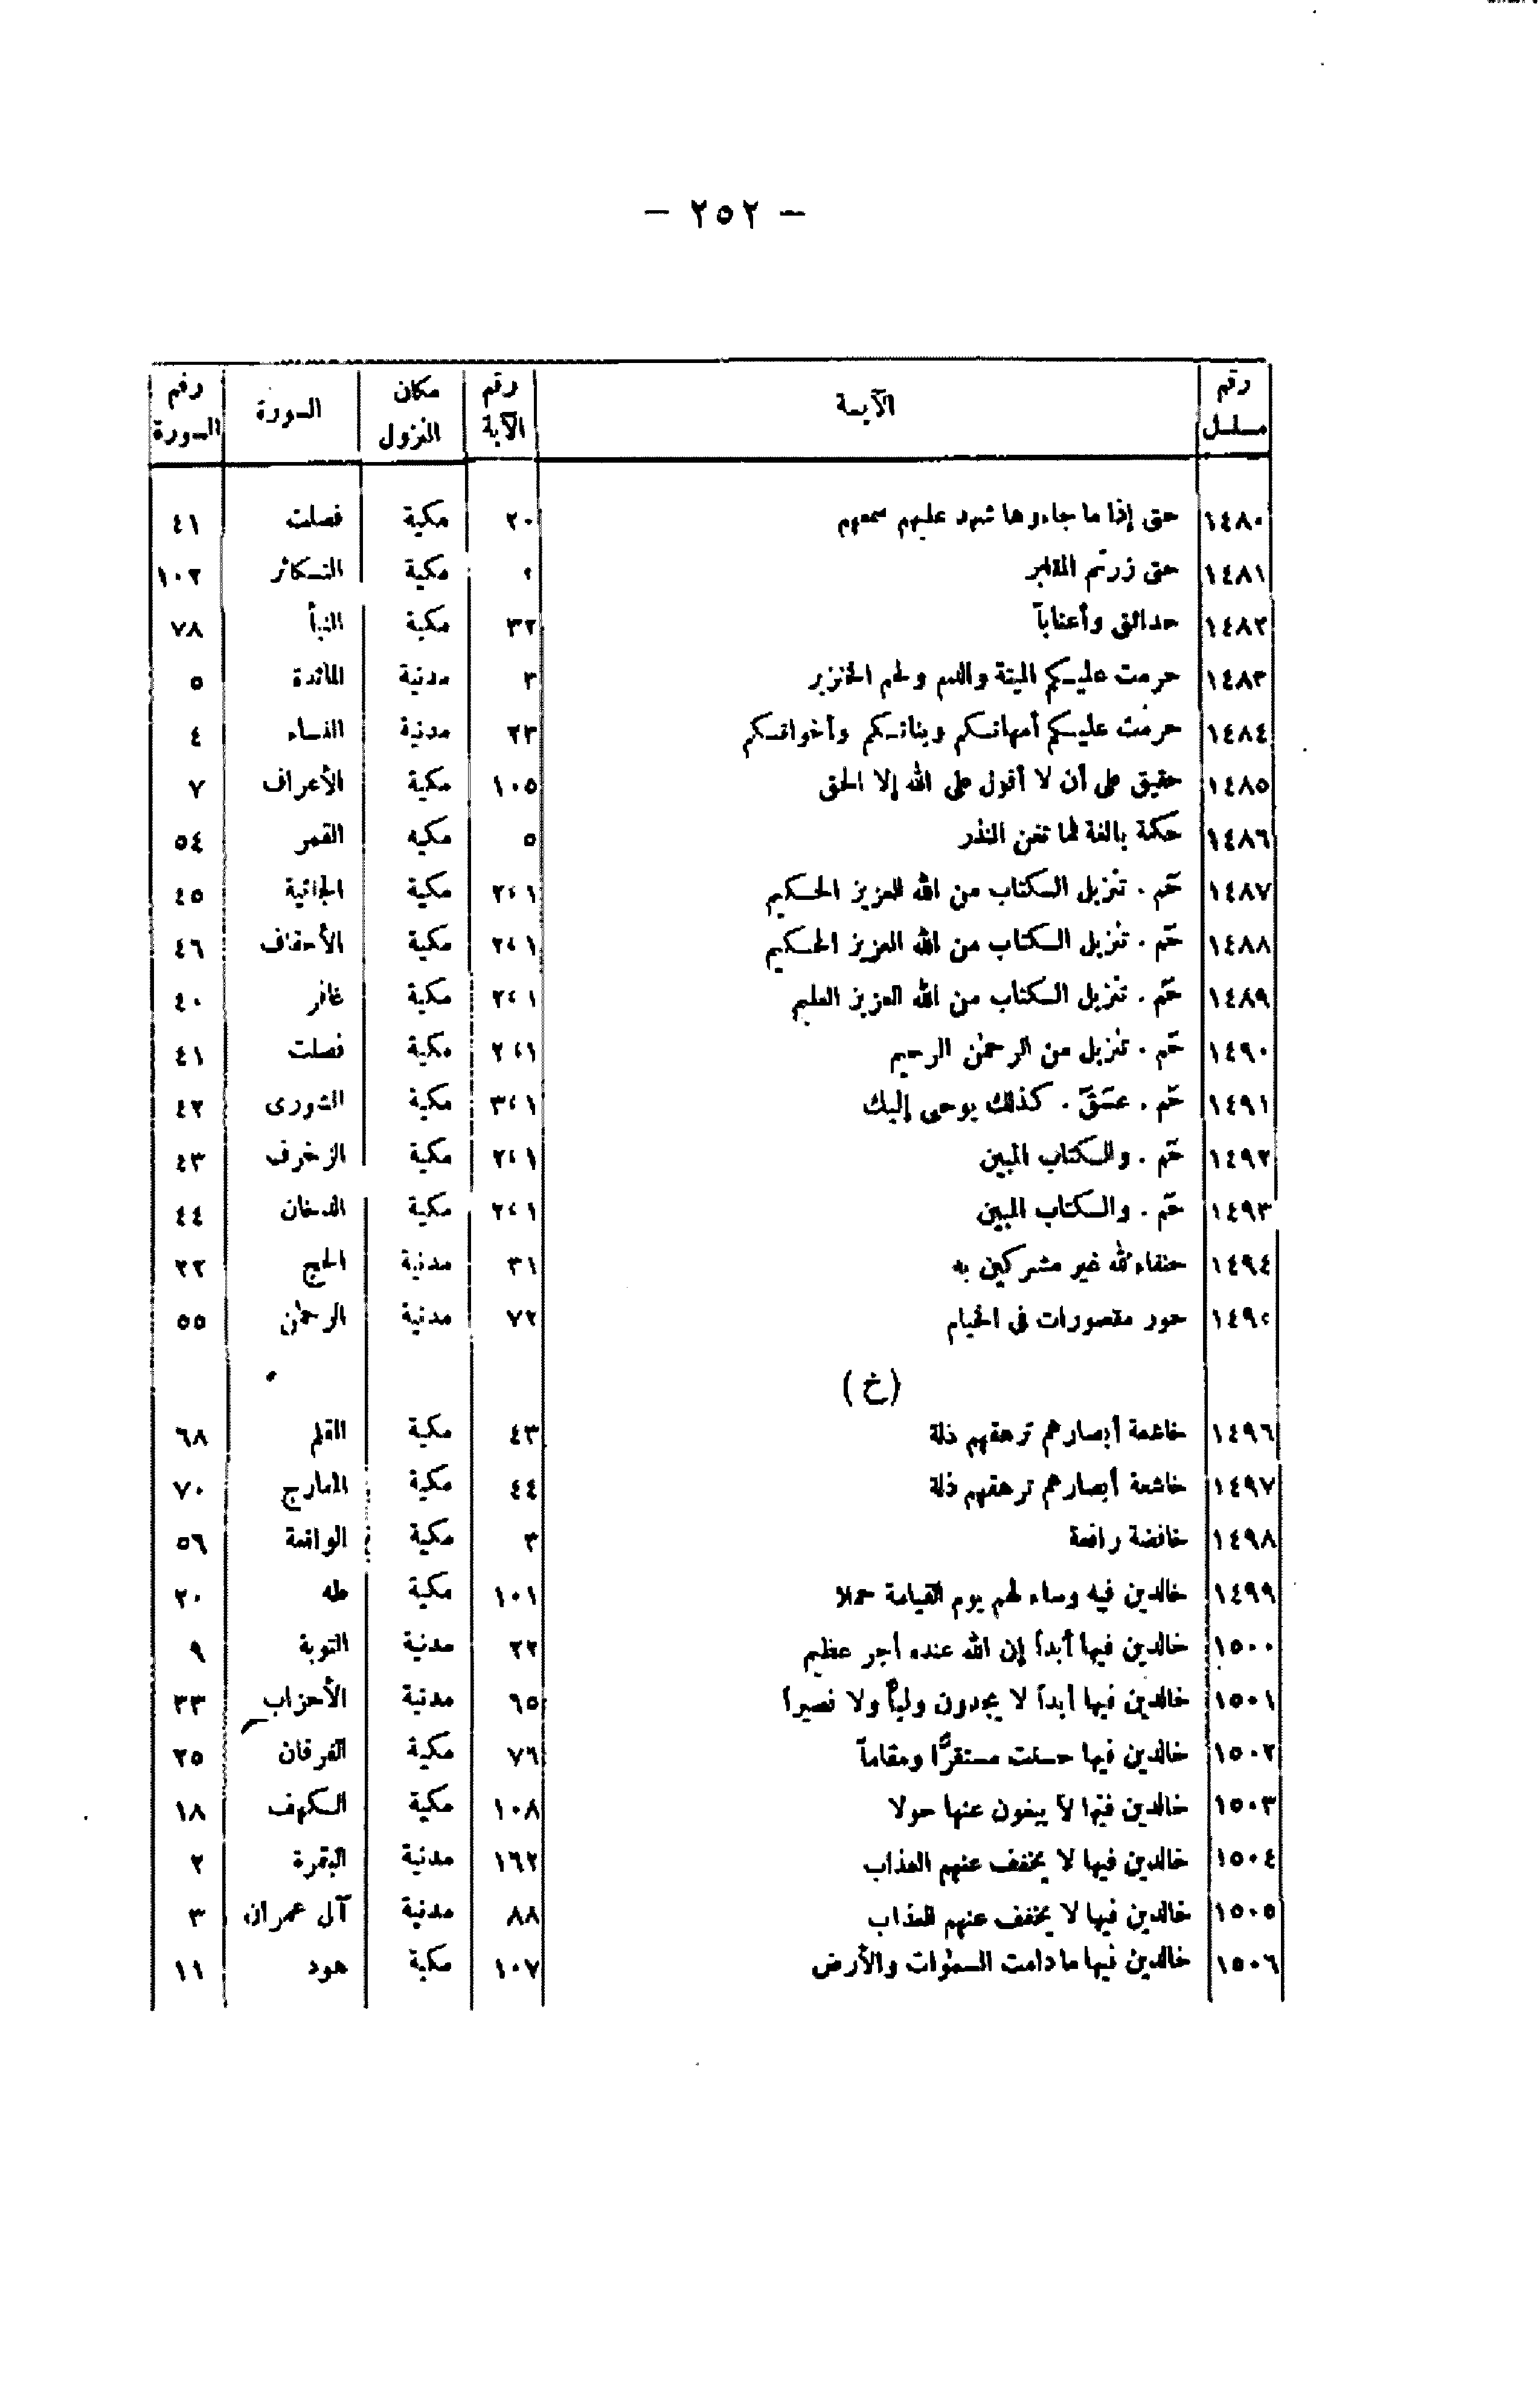 — ٢٥٢ —
رقم مسلسل | الآيـة | رقم الآية | مكان النزول | السورة | رقم السورة
١٤٨٠ | حتى إذا ما جاءوها شهد عليهم سمعهم | ٢٠ | مكية | فصلت | ٤١
١٤٨١ | حتى زرتم المقابر | ٢ | مكية | التكاثر | ١٠٢
١٤٨٢ | حدائق وأعناباً | ٣٢ | مكية | النبأ | ٧٨
١٤٨٣ | حرمت عليكم الميتة والدم ولحم الخنزير | ٣ | مدنية | المائدة | ٥
١٤٨٤ | حرمت عليكم أمهاتكم وبناتكم وأخواتكم | ٢٣ | مدنية | النساء | ٤
١٤٨٥ | حقيق على أن لا أقول على الله إلا الحق | ١٠٥ | مكية | الأعراف | ٧
١٤٨٦ | حكمة بالغة فما تغن النذر | ٥ | مكيه | القمر | ٥٤
١٤٨٧ | حٓم . تنزيل الكتاب من الله العزيز الحكيم | ١،٢ | مكية | الجاثية | ٤٥
١٤٨٨ | حٓم . تنزيل الكتاب من الله العزيز الحكيم | ١،٢ | مكية | الأحقاف | ٤٦
١٤٨٩ | حٓم . تنزيل الكتاب من الله العزيز العليم | ١،٢ | مكية | غافر | ٤٠
١٤٩٠ | حٓم . تنزيل من الرحمٰن الرحيم | ١،٢ | مكية | فصلت | ٤١
١٤٩١ | حٓم . عٓسٓقٓ . كذلك يوحى إليك | ١،٣ | مكية | الشورى | ٤٢
١٤٩٢ | حٓم . والكتاب المبين | ١،٢ | مكية | الزخرف | ٤٣
١٤٩٣ | حٓم . والكتاب المبين | ١،٢ | مكية | الدخان | ٤٤
١٤٩٤ | حنفاء لله غير مشركين به | ٣١ | مدنية | الحج | ٢٢
١٤٩٥ | حور مقصورات فى الخيام | ٧٢ | مدنية | الرحمٰن | ٥٥
(خ)
١٤٩٦ | خاشعة أبصارهم ترهقهم ذلة | ٤٣ | مكية | القلم | ٦٨
١٤٩٧ | خاشعة أبصارهم ترهقهم ذلة | ٤٤ | مكية | المعارج | ٧٠
١٤٩٨ | خافضة رافعة | ٣ | مكية | الواقعة | ٥٦
١٤٩٩ | خالدين فيه وساء لهم يوم القيامة حملا | ١٠١ | مكية | طه | ٢٠
١٥٠٠ | خالدين فيها أبداً إن الله عنده أجر عظيم | ٢٢ | مدنية | التوبة | ٩
١٥٠١ | خالدين فيها أبداً لا يجدون ولياً ولا نصيراً | ٦٥ | مدنية | الأحزاب | ٣٣
١٥٠٢ | خالدين فيها حسنت مستقرًّا ومقاماً | ٧٦ | مكية | الفرقان | ٢٥
١٥٠٣ | خالدين فيها لا يبغون عنها حولا | ١٠٨ | مكية | الكهف | ١٨
١٥٠٤ | خالدين فيها لا يخفف عنهم العذاب | ١٦٢ | مدنية | البقرة | ٢
١٥٠٥ | خالدين فيها لا يخفف عنهم العذاب | ٨٨ | مدنية | آل عمران | ٣
١٥٠٦ | خالدين فيها ما دامت السمٰوات والأرض | ١٠٧ | مكية | هود | ١١